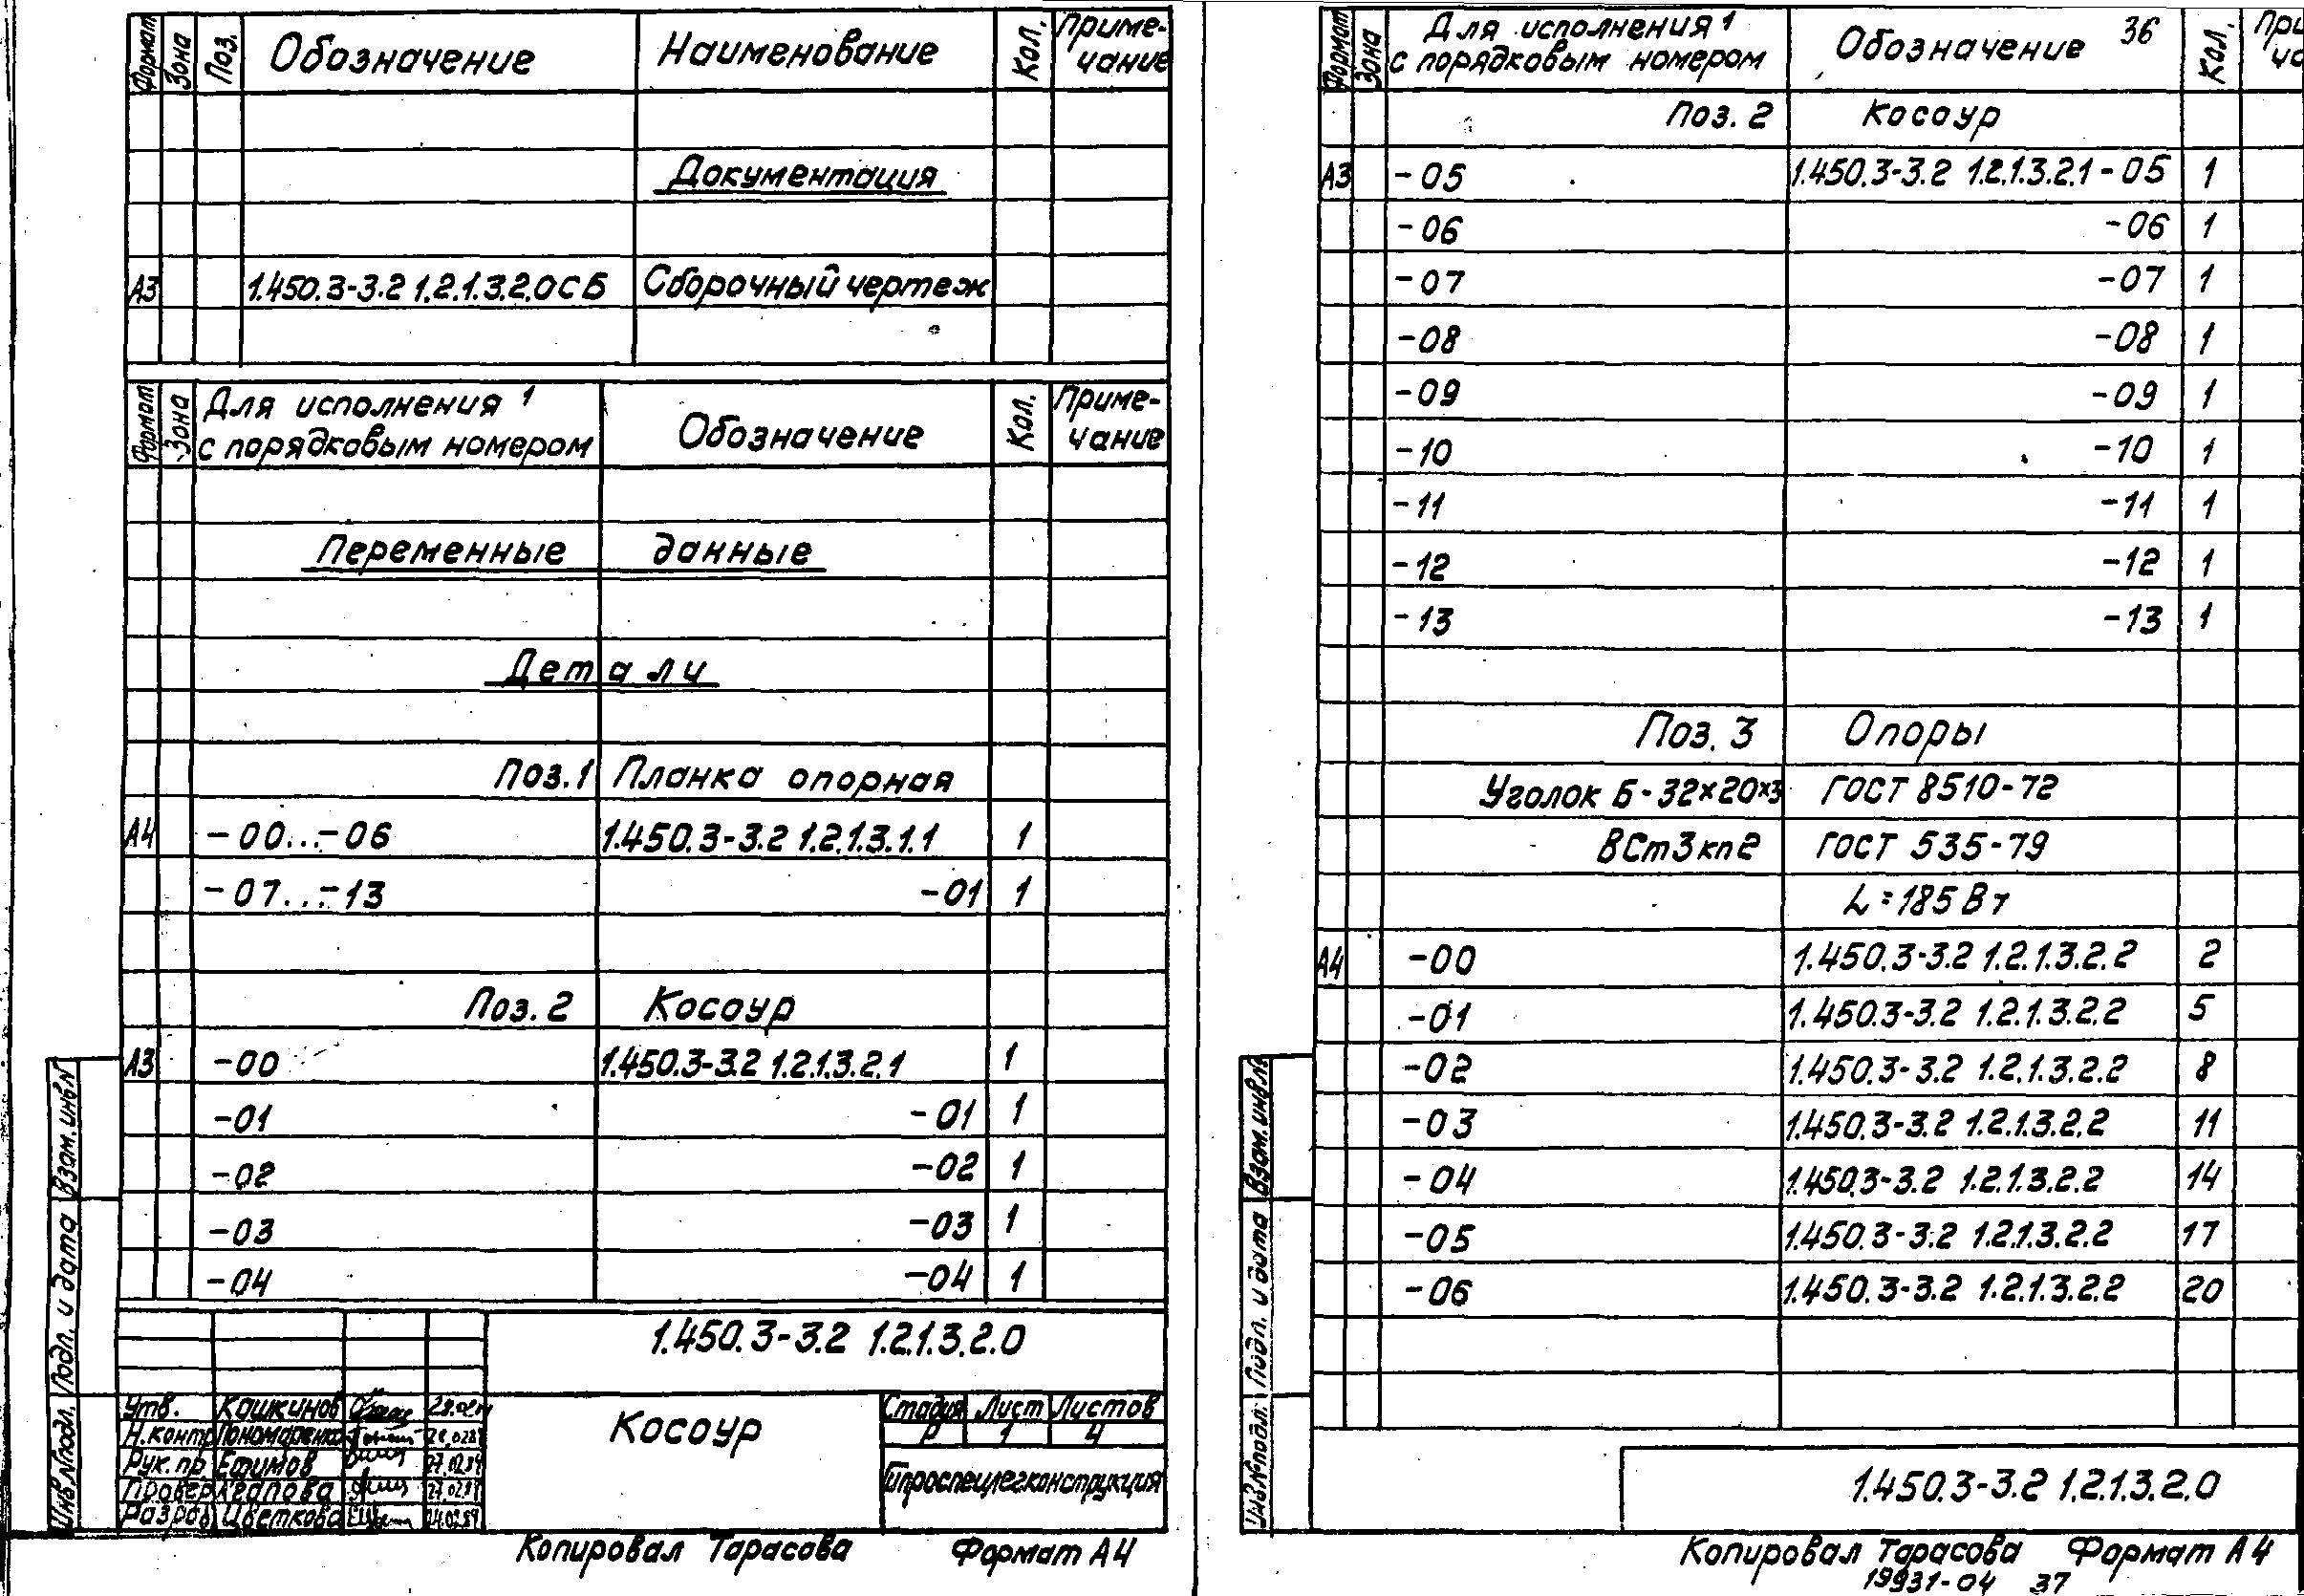 Формат Зона Поз. Обозначение Наименование Кол. Приме-
чание
Документация
А3 1.450.3-3.2 1.2.1.3.2.0СБ Сборочный чертеж
Формат Зона Для исполнения 1
с порядковым номером Обозначение Кол. Приме-
чание
Переменные данные
Детали
Поз.1 Планка опорная
А4 -00...-06 1.450.3-3.2 1.2.1.3.1.1 1
-07...-13 -01 1
Поз. 2 Косоур
А3 -00 1.450.3-3.2 1.2.1.3.2.1 1
-01 -01 1
-02 -02 1
-03 -03 1
-04 -04 1
1.450.3-3.2 1.2.1.3.2.0
Утв. Кашкинов
Н.контр Пономаренко
Рук.пр Ефимов 27.02.84
Провер 27.02.84
Разраб Цветкова 24.02.84
Косоур
Стадия Лист Листов
Р 1 4
Гипроспецлегконструкция
Взам.инв.N
Подп. и дата
Инв.Nподл.
Копировал Тарасова Формат А4
Формат Зона Для исполнения 1
с порядковым номером Обозначение 36 Кол. При
ча
Поз. 2 Косоур
А3 -05 1.450.3-3.2 1.2.1.3.2.1-05 1
-06 -06 1
-07 -07 1
-08 -08 1
-09 -09 1
-10 -10 1
-11 -11 1
-12 -12 1
-13 -13 1
Поз. 3 Опоры
Уголок Б-32×20×3 ГОСТ 8510-72
ВСт3кп2 ГОСТ 535-79
L=185 Вт
А4 -00 1.450.3-3.2 1.2.1.3.2.2 2
-01 1.450.3-3.2 1.2.1.3.2.2 5
-02 1.450.3-3.2 1.2.1.3.2.2 8
-03 1.450.3-3.2 1.2.1.3.2.2 11
-04 1.450.3-3.2 1.2.1.3.2.2 14
-05 1.450.3-3.2 1.2.1.3.2.2 17
-06 1.450.3-3.2 1.2.1.3.2.2 20
Взам.инв.№
Подп. и дата
Инв.№подл.
1.450.3-3.2 1.2.1.3.2.0
Копировал Тарасова Формат А4
19931-04 37